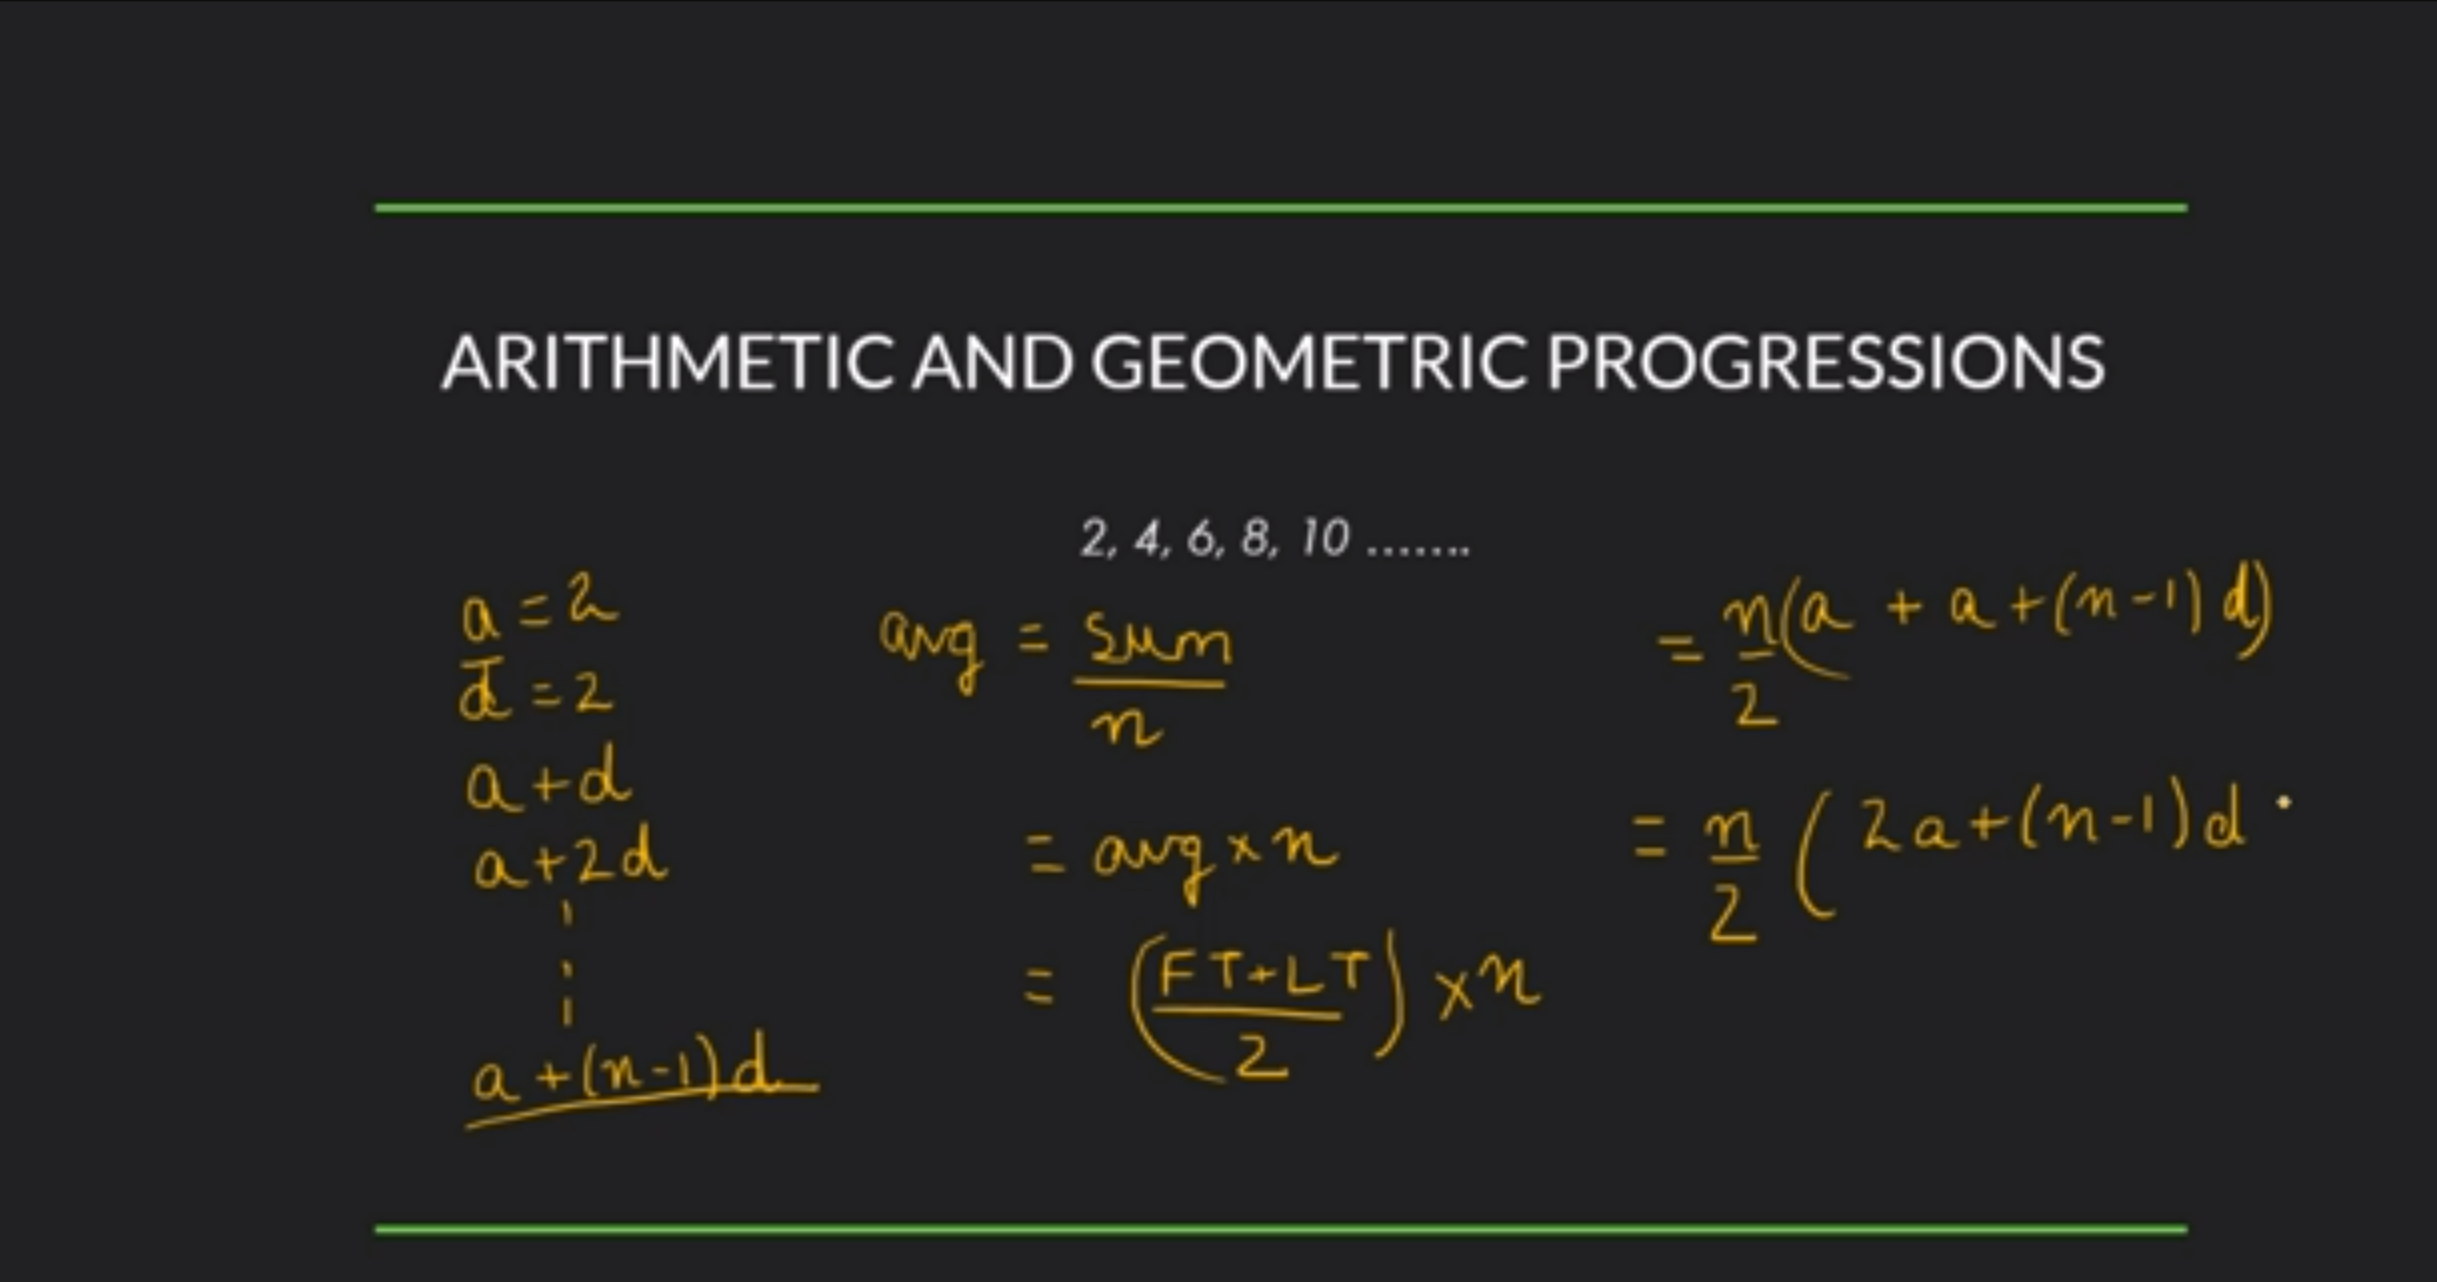 ARITHMETIC AND GEOMETRIC PROGRESSIONS
2, 4, 6, 8, 10 .......
a = 2
d = 2
a + d
a + 2d
a + (n-1)d
avg = sum / n
= avg × n
= (FT+LT / 2) × n
= n/2 (a + a + (n-1)d)
= n/2 (2a + (n-1)d